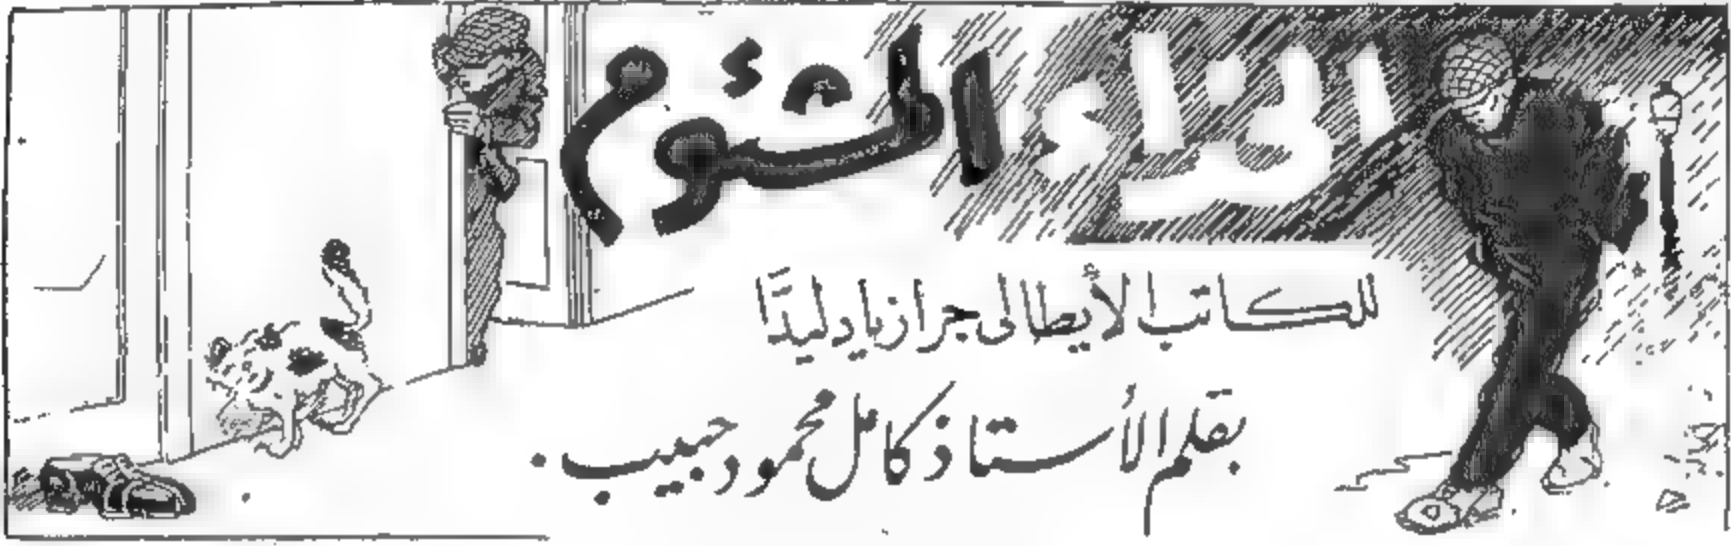 الحذاء المشئوم
للكاتب الأيطالى جرازيا دليدّا
بقلم الأستاذ كامل محمود حبيب .